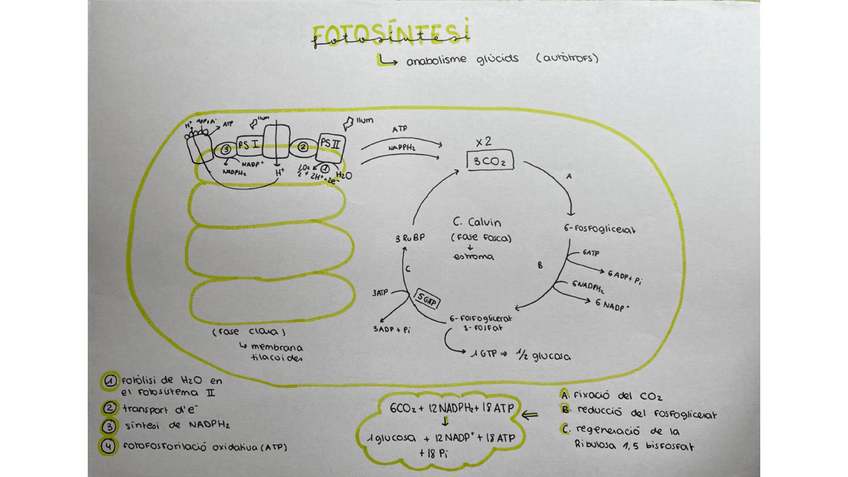 FOTOSÍNTESI
fotosíntesi
↳ anabolisme glúcids (autòtrofs)
H⁺ ADP+Pi
ATP
llum
llum
PS I
PS II
3
2
1
NADP⁺
NADPH₂
H⁺
½O₂ + 2H⁺+2e⁻
H₂O
ATP
NADPH₂
x2
3CO₂
A
6-fosfoglicerat
6ATP
6ADP+Pi
6NADPH₂
6 NADP⁺
B
C. Calvin
(fase fosca)
↓
estroma
3 RuBP
C
3ATP
3ADP+Pi
5GTP
6-fosfoglicerat
3-fosfat
1GTP → 1/2 glucosa
(fase clara)
↳ membrana
tilacoides
1 fotòlisi de H₂O en
el fotosistema II
2 transport d'e⁻
3 síntesi de NADPH₂
4 fotofosforilació oxidativa (ATP)
6CO₂ + 12NADPH₂ + 18ATP
↓
1glucosa + 12NADP⁺ + 18ATP
+ 18 Pi
A. fixació del CO₂
B. reducció del fosfoglicerat
C. regeneració de la
Ribulosa 1,5 bisfosfat